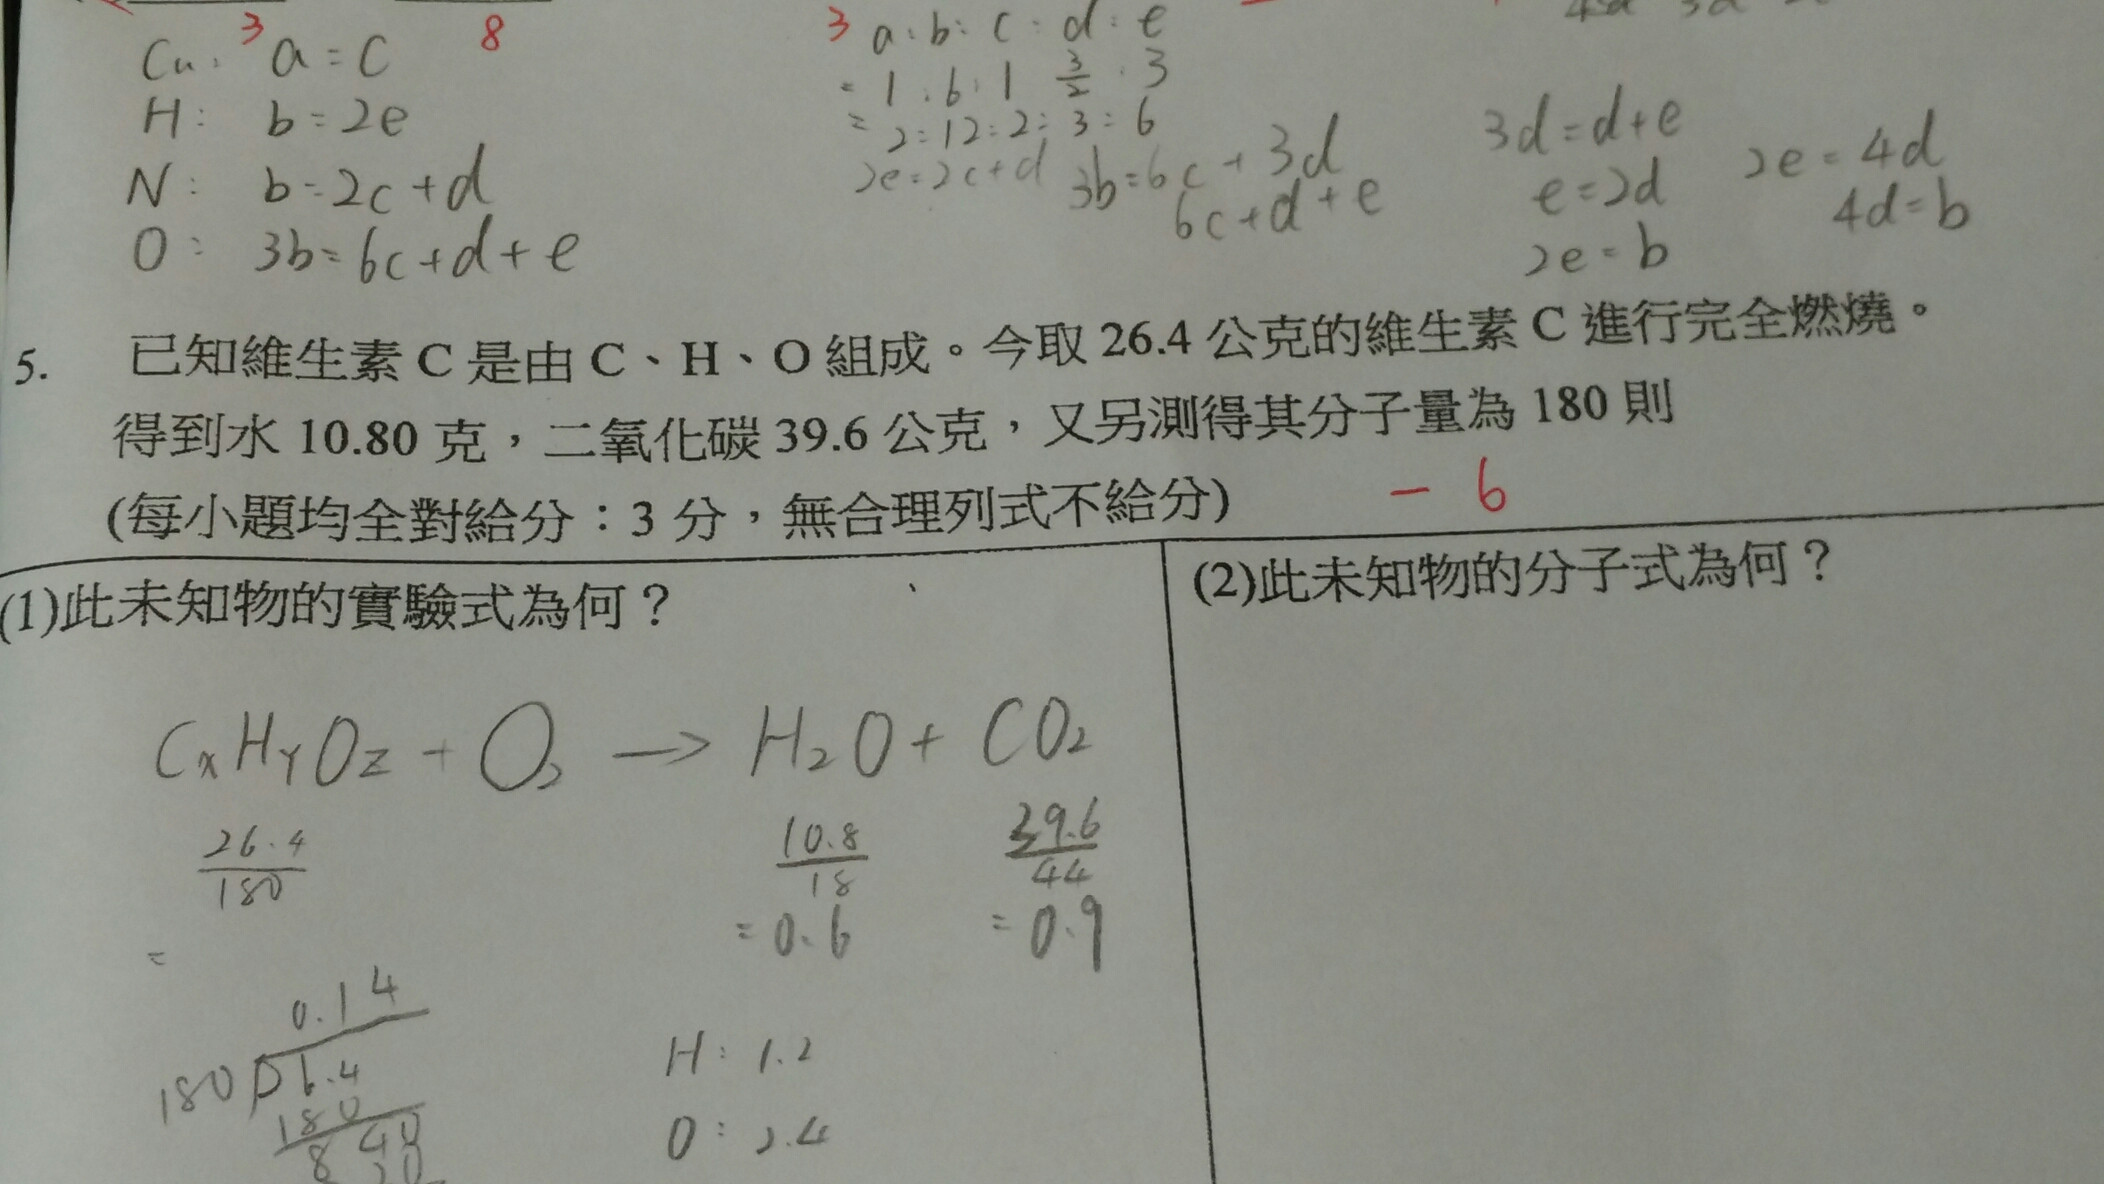 3
8
Cu: a = c
H: b = 2e
N: b = 2c + d
O: 3b = 6c + d + e
3 a : b : c : d : e
= 1 : 6 : 1 3/2 : 3
= 2 : 12 : 2 : 3 : 6
2e = 2c + d
3b = 6c + 3d
6c + d + e
3d = d + e
e = 2d
2e = b
2e = 4d
4d = b
5. 已知維生素 C 是由 C、H、O 組成。今取 26.4 公克的維生素 C 進行完全燃燒。
得到水 10.80 克,二氧化碳 39.6 公克,又另測得其分子量為 180 則
(每小題均全對給分:3 分,無合理列式不給分)
- 6
(1)此未知物的實驗式為何?
CxHyOz + O2 → H2O + CO2
26.4/180
=
10.8/18
= 0.6
39.6/44
= 0.9
0.14
180 26.4
180
840
H : 1.2
O : 2.4
(2)此未知物的分子式為何?